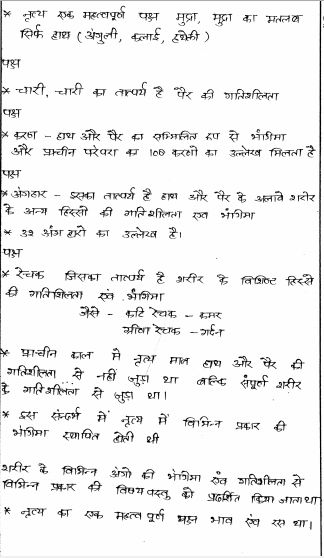 * नृत्य एक महत्वपूर्ण पक्ष मुद्रा, मुद्रा का मतलब
सिर्फ हाथ (अंगुली, कलाई, हथेली)
पक्ष
* चारी, चारी का तात्पर्य है पैर की गतिशीलता
पक्ष
* करण - हाथ और पैर का सम्मिलित रूप से भंगिमा
और प्राचीन परंपरा का 108 करणों का उल्लेख मिलता है
पक्ष
* अंगहार - इसका तात्पर्य है हाथ और पैर के अलावे शरीर
के अन्य हिस्सों की गतिशीलता एवं भंगिमा
* 32 अंग हारों का उल्लेख है।
पक्ष
* रेचक जिसका तात्पर्य है शरीर के विशिष्ट हिस्से
की गतिशीलता एवं भंगिमा
जैसे - कटि रेचक - कमर
ग्रीवा रेचक - गर्दन
* प्राचीन काल में नृत्य मात्र हाथ और पैर की
गतिशीलता से नहीं जुड़ा था बल्कि संपूर्ण शरीर
के गतिशीलता से जुड़ा था।
* इस संदर्भ में नृत्य में विभिन्न प्रकार की
भंगिमा स्थापित होती थी
शरीर के विभिन्न अंगों की भंगिमा एवं गतिशीलता से
विभिन्न प्रकार की विषय वस्तु को प्रदर्शित किया जाता था
* नृत्य का एक महत्वपूर्ण पक्ष भाव एवं रस था।